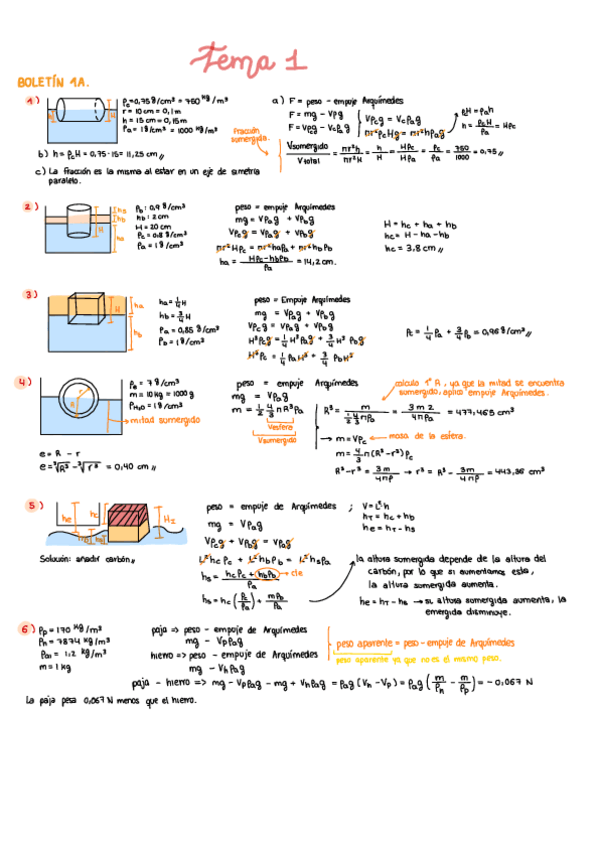 Tema 1
BOLETÍN 1A.
1) ρc=0,75 g/cm³ = 750 kg/m³
r = 10cm = 0,1m
h = 15cm = 0,15m
ρa = 1g/cm³ = 1000 kg/m³
h
H
a) F = peso - empuje Arquímedes
F = mg - Vρg
F = Vρcg - Vcρag
Vρcg = Vcρag
πr²ρcHg = πr²hρag
ρcH = ρah
h = ρcH/ρa = Hρc
Fracción sumergida.
Vsumergido/Vtotal = πr²h/πr²H = h/H = Hρc/Hρa = ρc/ρa = 750/1000 = 0,75 //
b) h = ρcH = 0,75·15 = 11,25 cm //
c) La fracción es la misma al estar en un eje de simetría
paralelo.
2) ρb: 0,9 g/cm³
hb: 2cm
H = 20cm
ρc = 0,8 g/cm³
ρa = 1 g/cm³
peso = empuje Arquímedes
mg = Vρag + Vρbg
Vρcg = Vρag + Vρbg
πr²Hρc = πr²haρa + πr²hbρb
ha = (Hρc - hbρb)/ρa = 14,2cm.
H = hc + ha + hb
hc = H - ha - hb
hc = 3,8cm //
3) ha = 1/4 H
hb = 3/4 H
ρa = 0,85 g/cm³
ρb = 1 g/cm³
peso = Empuje Arquímedes
mg = Vρag + Vρbg
Vρcg = Vρag + Vρbg
H³ρcg = 1/4 H³ρag + 3/4 H³ρbg
H³ρc = 1/4 ρaH³ + 3/4 ρbH³
ρc = 1/4 ρa + 3/4 ρb = 0,96 g/cm³ //
4) ρe = 7 g/cm³
m = 10kg = 1000g
ρH₂O = 1g/cm³
mitad sumergido
peso = empuje Arquímedes
mg = Vρag
m = 1/2 4/3 πR³ρa
Vesfera
Vsumergido
calculo 1º R, ya que la mitad se encuentra
sumergido, aplico empuje Arquímedes.
R³ = m/(1/2 4/3 πρa) = 3m2/4πρa = 477,465 cm³
m = Vρc ← masa de la esfera.
m = 4/3 π(R³-r³)ρc
R³-r³ = 3m/4πρ → r³ = R³ - 3m/4πρ = 443,36 cm³
e = R - r
e = ³√R³ - ³√r³ = 0,40 cm //
5) he
hc
Solución: añadir carbón //
peso = empuje de Arquímedes ; V = L²h
mg = Vρag
Vρcg + Vρbg = Vρag
L²hcρc + L²hbρb = L²hsρa
hs = (hcρc + hbρb)/ρa → cte
hs = hc(ρc/ρa) + mρb/ρa
hT = hc + hb
he = hT - hs
la altura sumergida depende de la altura del
carbón, por lo que si aumentamos esta,
la altura sumergida aumenta.
he = hT - hs → si altura sumergida aumenta, la
emergida disminuye.
6) ρp = 170 kg/m³
ρh = 7874 kg/m³
ρai = 1,2 kg/m³
m = 1kg
paja => peso - empuje de Arquímedes
mg - Vpρag
hierro => peso - empuje de Arquímedes
mg - Vhρag
peso aparente = peso - empuje de Arquímedes
peso aparente ya que no es el mismo peso.
paja - hierro => mg - Vpρag - mg + Vhρag = ρag(Vh - Vp) = ρag(m/ρh - m/ρp) = -0,067 N
La paja pesa 0,067 N menos que el hierro.